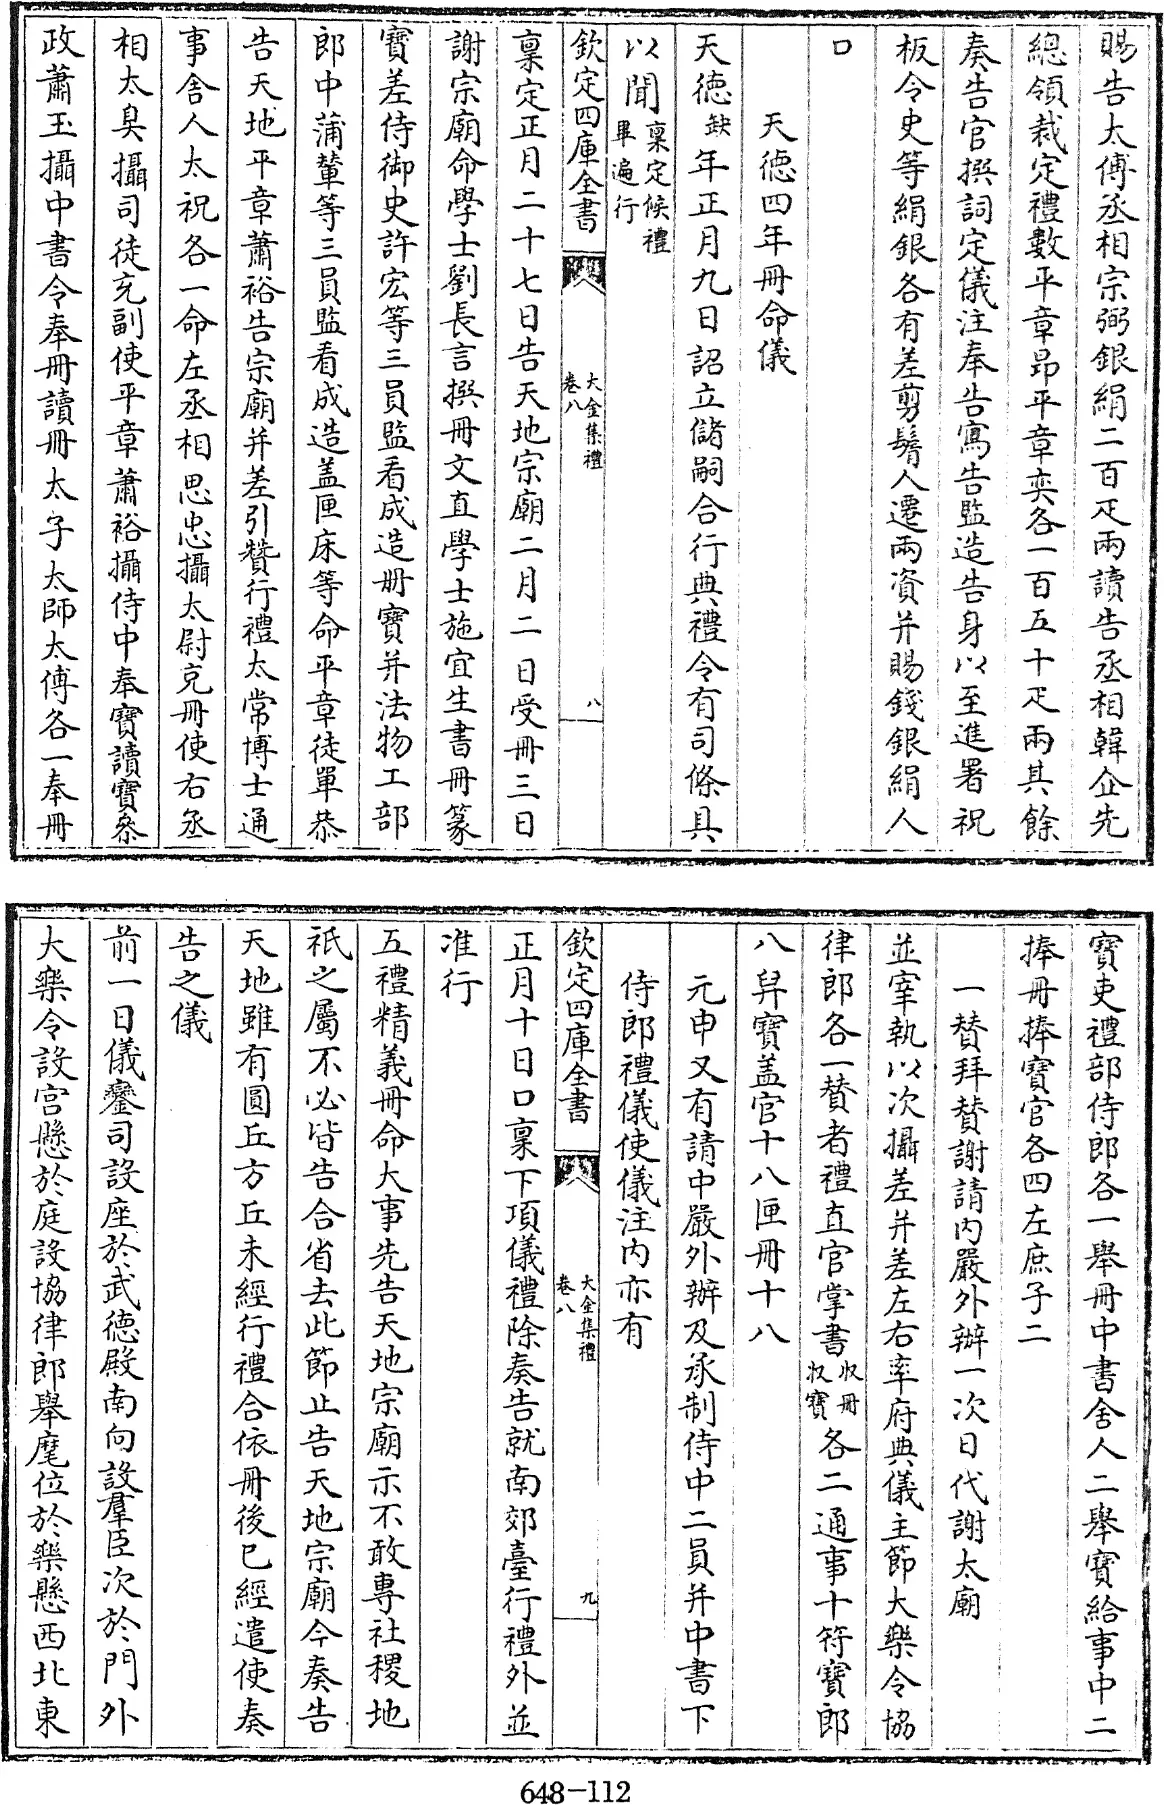 賜告太傅丞相宗弼銀絹二百疋兩讀告丞相韓企先
總領裁定禮數平章昂平章奕各一百五十疋兩其餘
奏告官撰詞定儀注奉告寫告監造告身以至進署祝
板令史等絹銀各有差剪鬅人遷兩資并賜錢銀絹人
口
天德四年冊命儀
天德缺年正月九日詔立儲嗣合行典禮令有司條具
以聞稟定候禮畢遍行
欽定四庫全書 大金集禮卷八 八
稟定正月二十七日告天地宗廟二月二日受冊三日
謝宗廟命學士劉長言撰冊文直學士施宜生書冊篆
寶差侍御史許宏等三員監看成造册寶并法物工部
郎中蒲輦等三員監看成造盖匣床等命平章徒單恭
告天地平章蕭裕告宗廟并差引贊行禮太常博士通
事舍人太祝各一命左丞相思忠攝太尉充冊使右丞
相太臭攝司徒充副使平章蕭裕攝侍中奉寶讀寶叅
政蕭玉攝中書令奉冊讀冊太子太師太傅各一奉冊
寶吏禮部侍郎各一舉冊中書舍人二舉寶給事中二
捧冊捧寶官各四左庶子二
一贊拜贊謝請内嚴外辦一次日代謝太廟
並宰執以次攝差并差左右率府典儀主節大樂令協
律郎各一贊者禮直官掌書收冊收寶各二通事十符寶郎
八舁寶盖官十八匣冊十八
元申又有請中嚴外辦及承制侍中二員并中書下
侍郎禮儀使儀注内亦有
欽定四庫全書 大金集禮卷八 九
正月十日口稟下項儀禮除奏告就南郊臺行禮外並
准行
五禮精義冊命大事先告天地宗廟示不敢專社稷地
祇之屬不必皆告合省去此節止告天地宗廟今奏告
天地雖有圓丘方丘未經行禮合依冊後已經遣使奏
告之儀
前一日儀鸞司設座於武德殿南向設羣臣次於門外
大樂令設宮懸於庭設協律郎舉麾位於樂懸西北東
648-112